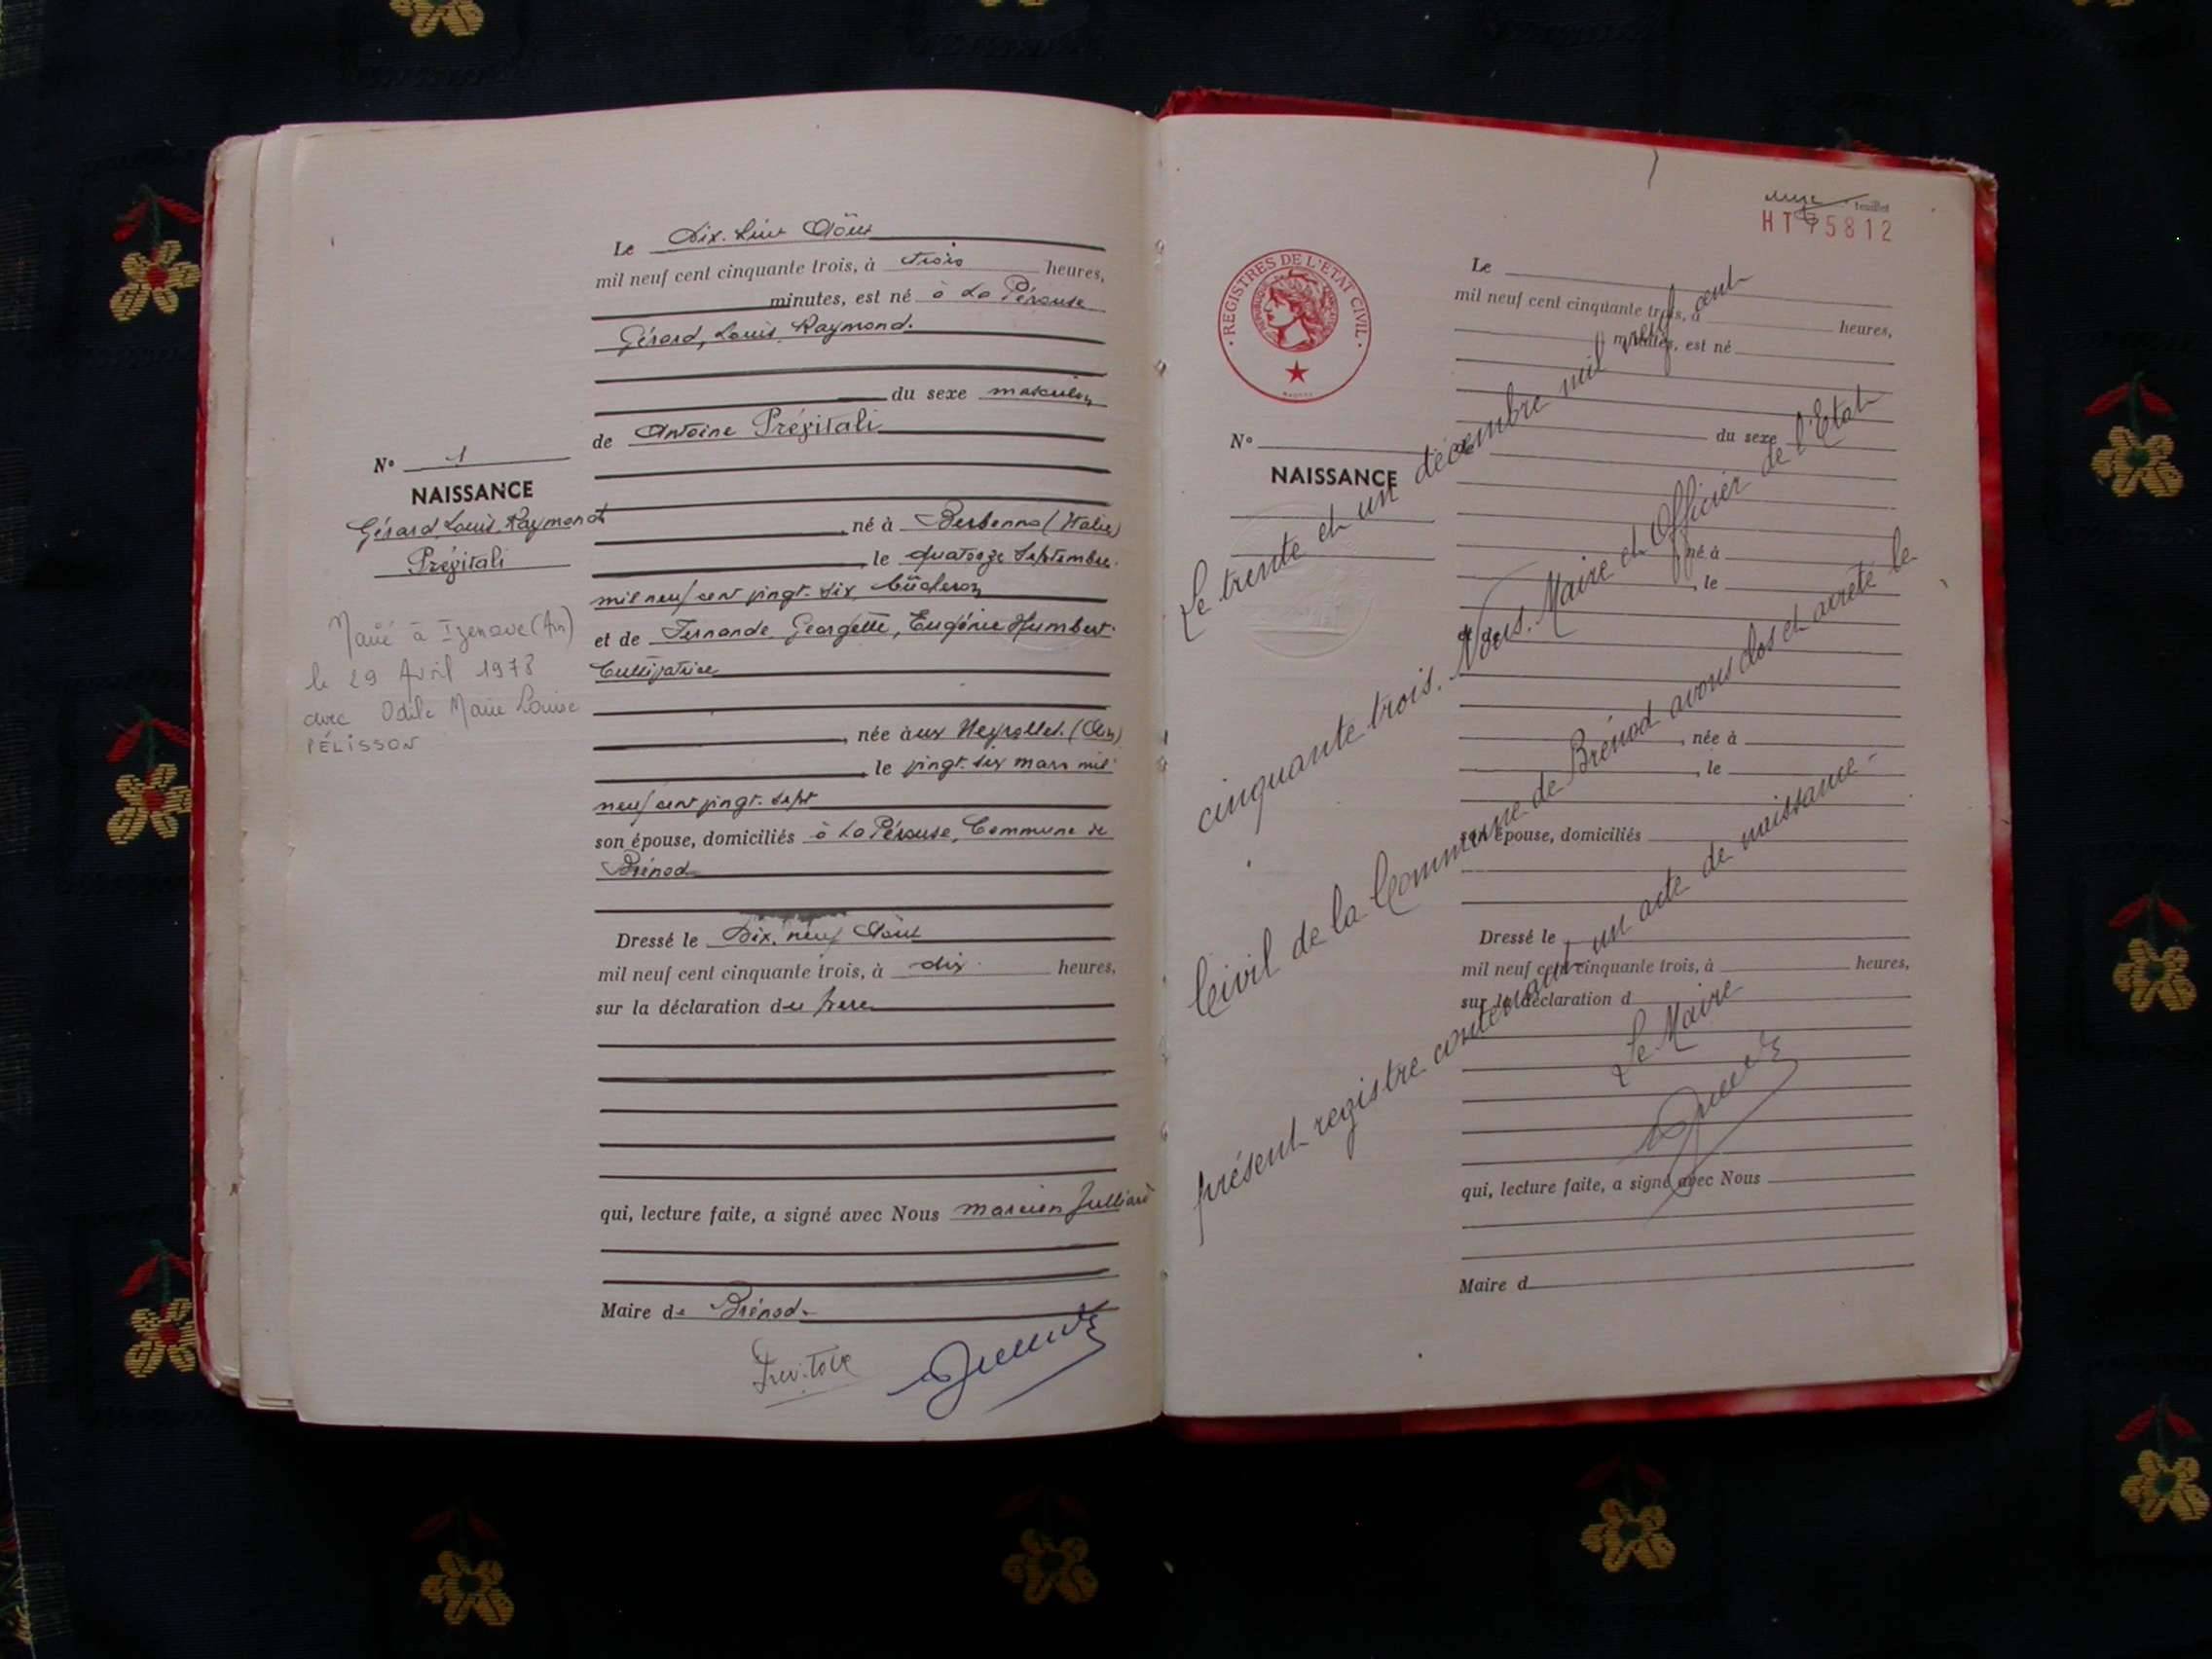 Le Dix. huit Août
mil neuf cent cinquante trois, à trois heures,
minutes, est né à La Pérouse
Gérard, Louis, Raymond.
du sexe masculin
de Antoine Prévitali
N° 1
NAISSANCE
Gérard, Louis, Raymond
Prévitali
né à Berbenno (Italie)
, le quatorze Septembre.
mil neuf cent vingt-six, bûcheron
et de Fernande Georgette, Eugénie Humbert.
Cultivatrice
Marié à Izenave (Ain)
le 29 Avril 1978
avec Odile Marie Louise
PÉLISSON
, née aux Neyrolles. (Ain)
, le vingt. six mars mil
neuf cent vingt. sept
son épouse, domiciliés à La Pérouse, Commune de
Brénod
Dressé le Dix. neuf Août
mil neuf cent cinquante trois, à dix heures,
sur la déclaration du père
qui, lecture faite, a signé avec Nous Marcien Julliard
Maire de Brénod.
feuillet
HT 75812
REGISTRES DE L'ETAT CIVIL
Le
mil neuf cent cinquante trois, à heures,
minutes, est né
du sexe
N° de
NAISSANCE
né à
, le
et de
, née à
, le
son épouse, domiciliés
Dressé le
mil neuf cent cinquante trois, à heures,
sur la déclaration d
qui, lecture faite, a signé avec Nous
Maire d
Le trente et un décembre mil neuf cent
cinquante trois. Nous. Maire et Officier de l'Etat
Civil de la Commune de Brénod avons clos et arrêté le
présent registre contenant un acte de naissance-
Le Maire